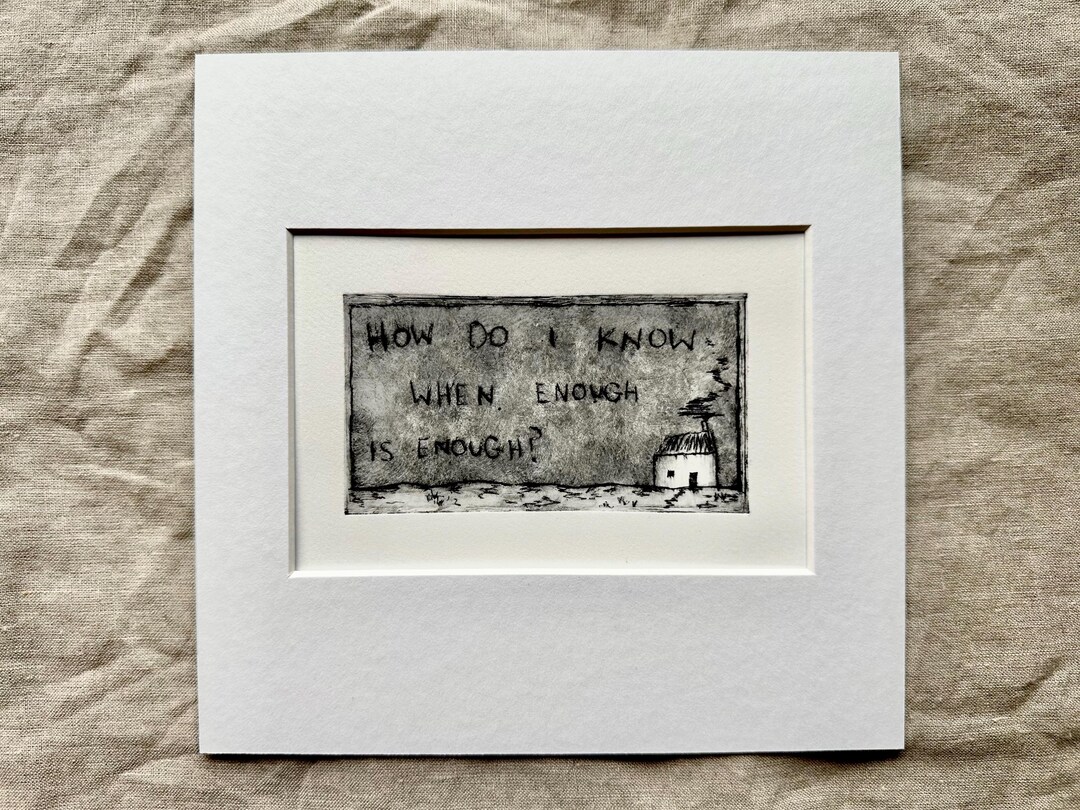 HOW DO I KNOW
WHEN ENOUGH
IS ENOUGH?